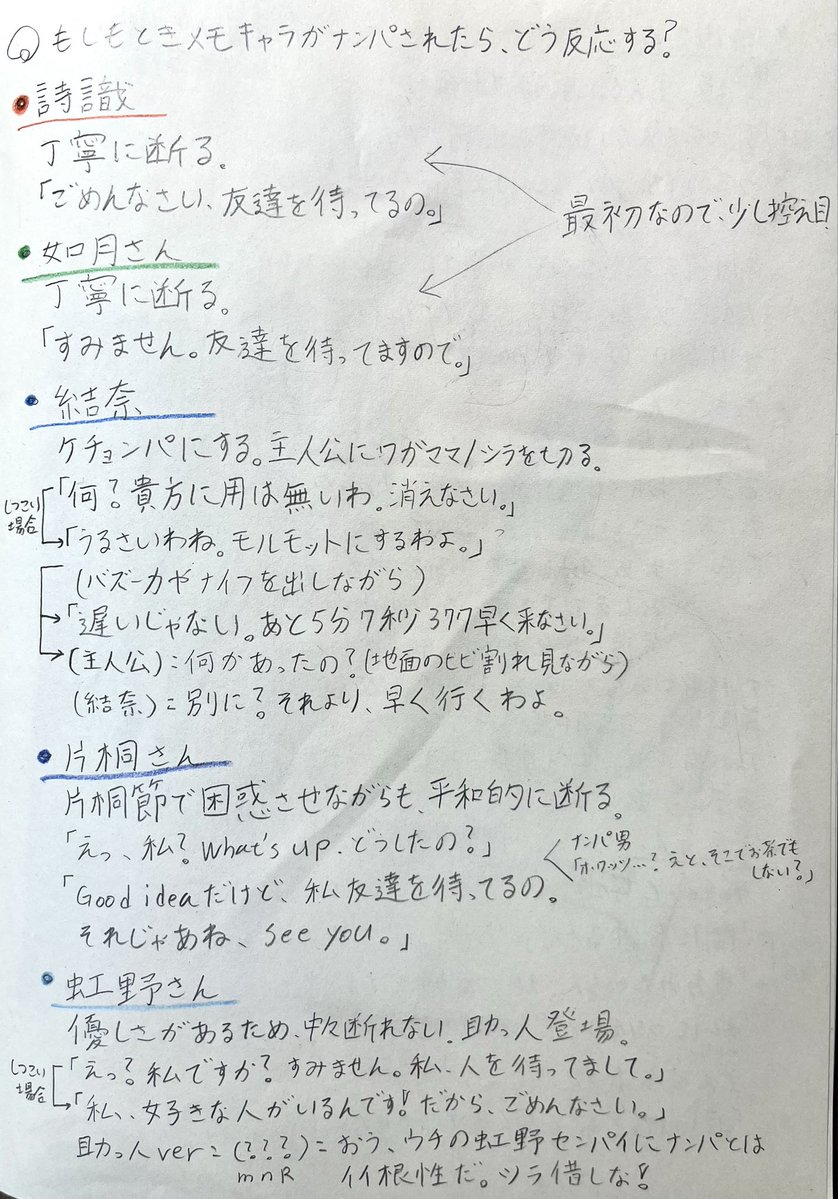 Q もしもときメモキャラがナンパされたら、どう反応する?
・詩識
丁寧に断る。
「ごめんなさい、友達を待ってるの。」
最初なので、少し控え目
・如月さん
丁寧に断る。
「すみません。友達を待ってますので。」
・結奈
ケチョンパにする。主人公にワガママ/シラを切る。
しつこい場合
「何?貴方に用は無いわ。消えなさい。」
「うるさいわね。モルモットにするわよ。」
(バズーカやナイフを出しながら)
「遅いじゃない。あと5分7秒377早く来なさい。」
(主人公)=何かあったの?(地面のヒビ割れ見ながら)
(結奈)=別に?それより、早く行くわよ。
・片桐さん
片桐節で困惑させながらも、平和的に断る。
「えっ、私?What's up.どうしたの?」
ナンパ男
「ホ、ワッツ…?えと、そこでお茶でも
しない?」
「Good ideaだけど、私友達を待ってるの。
それじゃあね、see you。」
・虹野さん
優しさがあるため、中々断れない.助っ人登場。
しつこい場合
「えっ?私ですか?すみません。私、人を待ってまして。」
「私、好きな人がいるんです!だから、ごめんなさい。」
助っ人ver=(???)=おう、ウチの虹野センパイにナンパとは
mnR イイ根性だ。ツラ借しな!